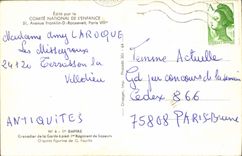 Édité par le
COMITÉ NATIONAL DE L'ENFANCE
51, Avenue Franklin-D.-Roosevelt, Paris VIIIe
Madame Amy LAROQUE
Les Misseyroux
24120 Terrasson la
Villedieu
ANTIQUITES
Femme Actuelle
Gd jeu concours de la semaine
Cedex 866
75808 PARIS-BRUNE
N° 6 - 1er EMPIRE
Grenadier de la Garde à pied - 1er Régiment de Sapeurs
D'après figurine de G. Fouillé